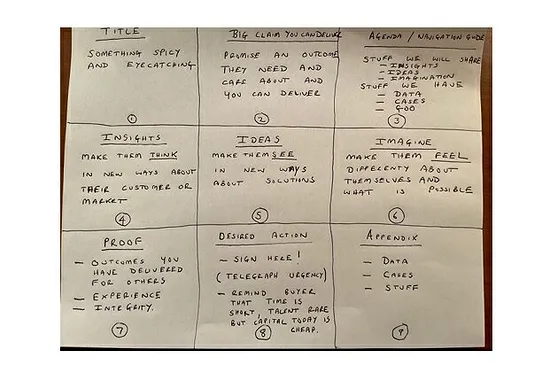 TITLE
SOMETHING SPICY
AND EYECATCHING
1
BIG CLAIM YOU CAN DELIVER
PROMISE AN OUTCOME
THEY NEED AND
CARE ABOUT AND
YOU CAN DELIVER
2
AGENDA / NAVIGATION GUIDE
STUFF WE WILL SHARE
- INSIGHTS
- IDEAS
- IMAGINATION
STUFF WE HAVE
- DATA
- CASES
3
INSIGHTS
MAKE THEM THINK
IN NEW WAYS ABOUT
THEIR CUSTOMER OR
MARKET
4
IDEAS
MAKE THEM SEE
IN NEW WAYS
ABOUT SOLUTIONS
5
IMAGINE
MAKE THEM FEEL
DIFFERENTLY ABOUT
THEMSELVES AND
WHAT IS POSSIBLE
6
PROOF
- OUTCOMES YOU
HAVE DELIVERED
FOR OTHERS
- EXPERIENCE
- INTEGRITY.
7
DESIRED ACTION
- SIGN HERE!
(TELEGRAPH URGENCY)
- REMIND BUYER
THAT TIME IS
SHORT, TALENT RARE
BUT CAPITAL TODAY IS
CHEAP.
8
APPENDIX
- DATA
- CASES
- STUFF
9